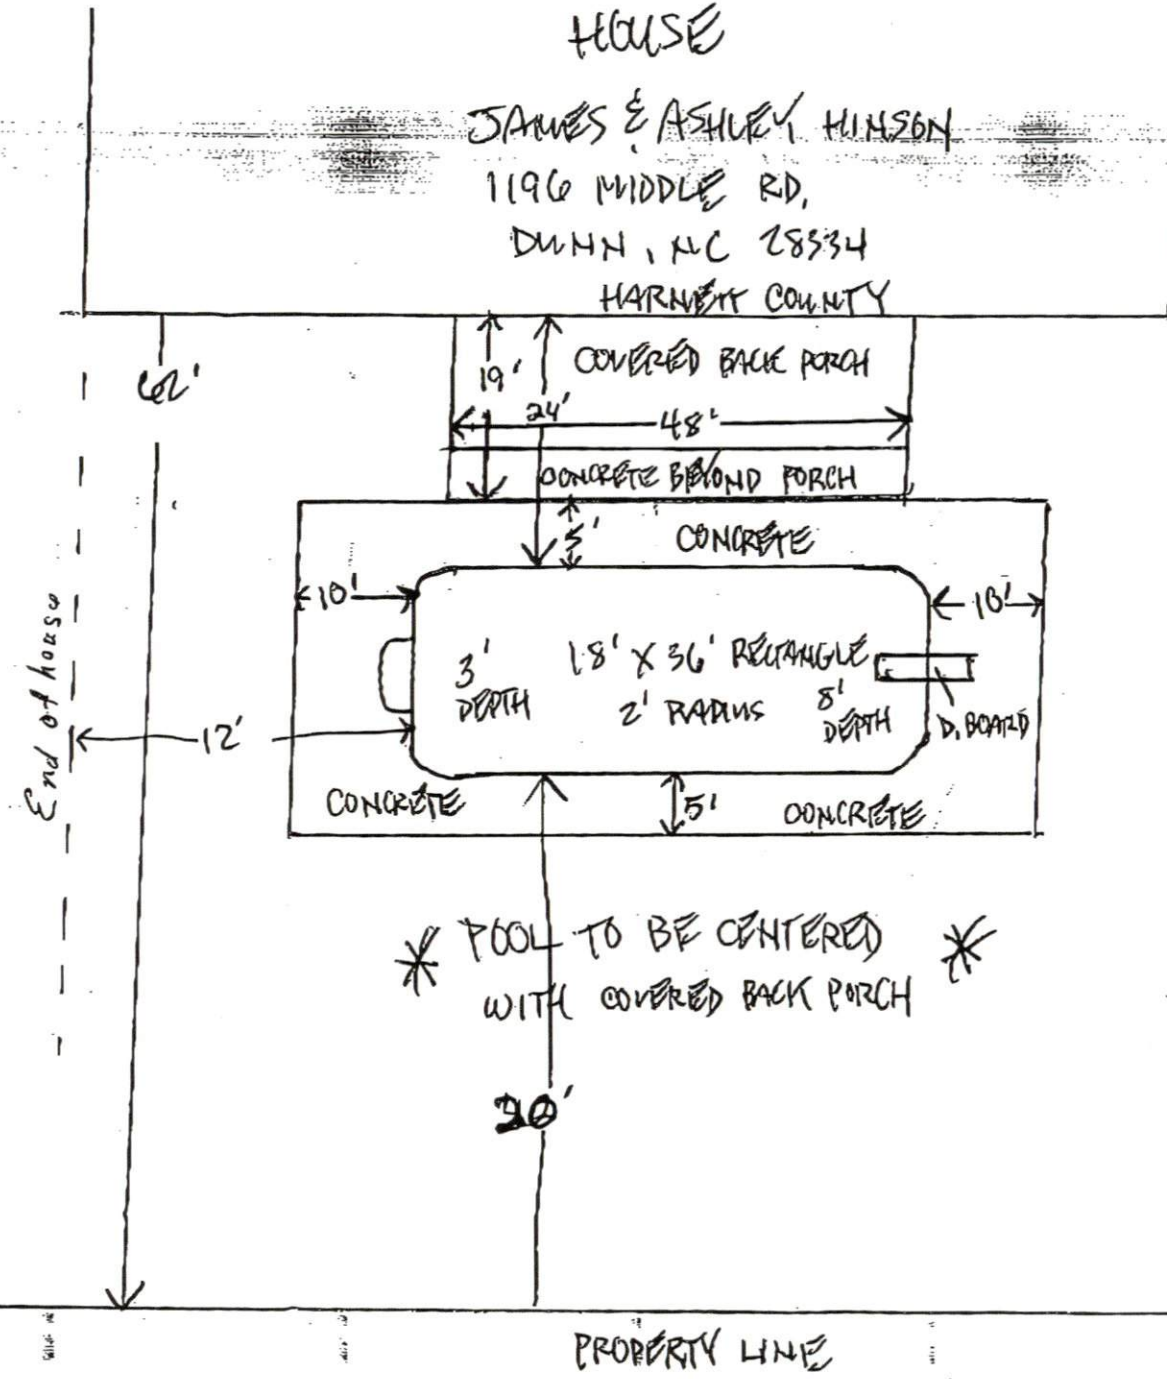 HOUSE
JAMES & ASHLEY HINSON
1196 MIDDLE RD,
DUNN, NC 28334
HARNETT COUNTY
62'
19'
24'
COVERED BACK PORCH
48'
CONCRETE BEYOND PORCH
5'
CONCRETE
10'
10'
3'
DEPTH
18' X 36' RECTANGLE
2' RADIUS
8'
DEPTH
D. BOARD
End of house
12'
CONCRETE
5'
CONCRETE
* POOL TO BE CENTERED *
WITH COVERED BACK PORCH
20'
PROPERTY LINE